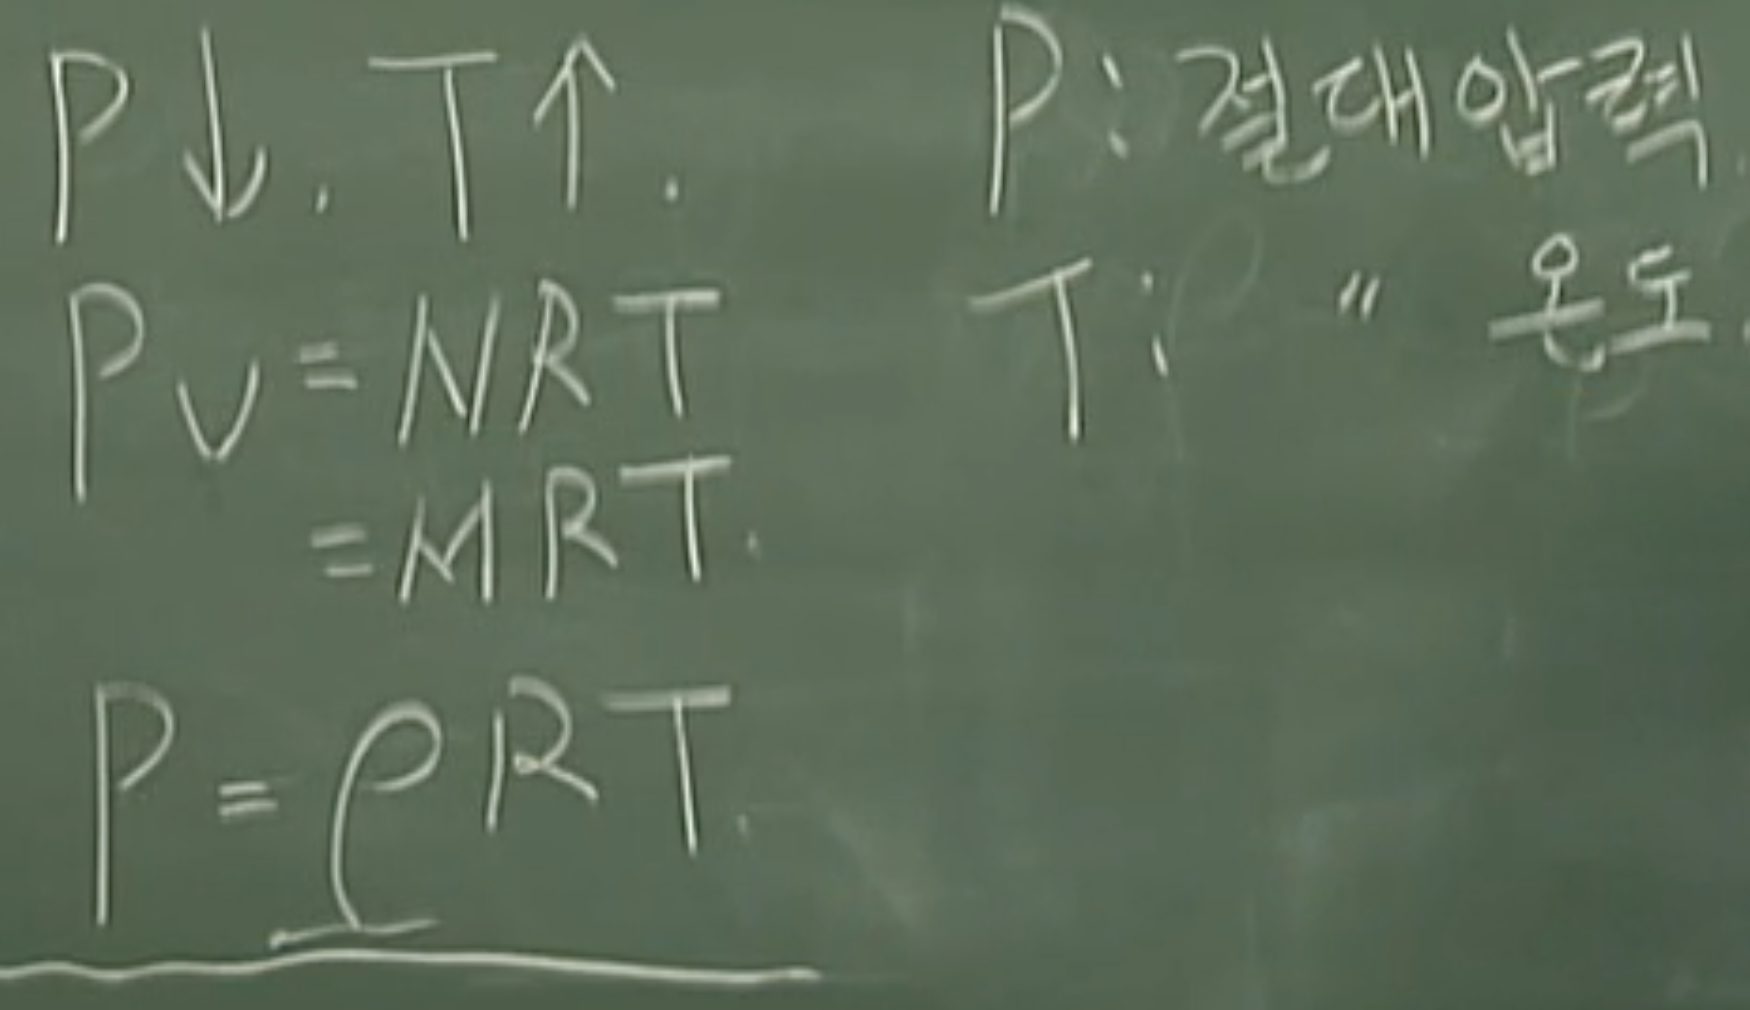 P↓. T↑.
PV=NRT
=MRT.
P=ρRT.
P: 절대압력.
T: 〃 온도.